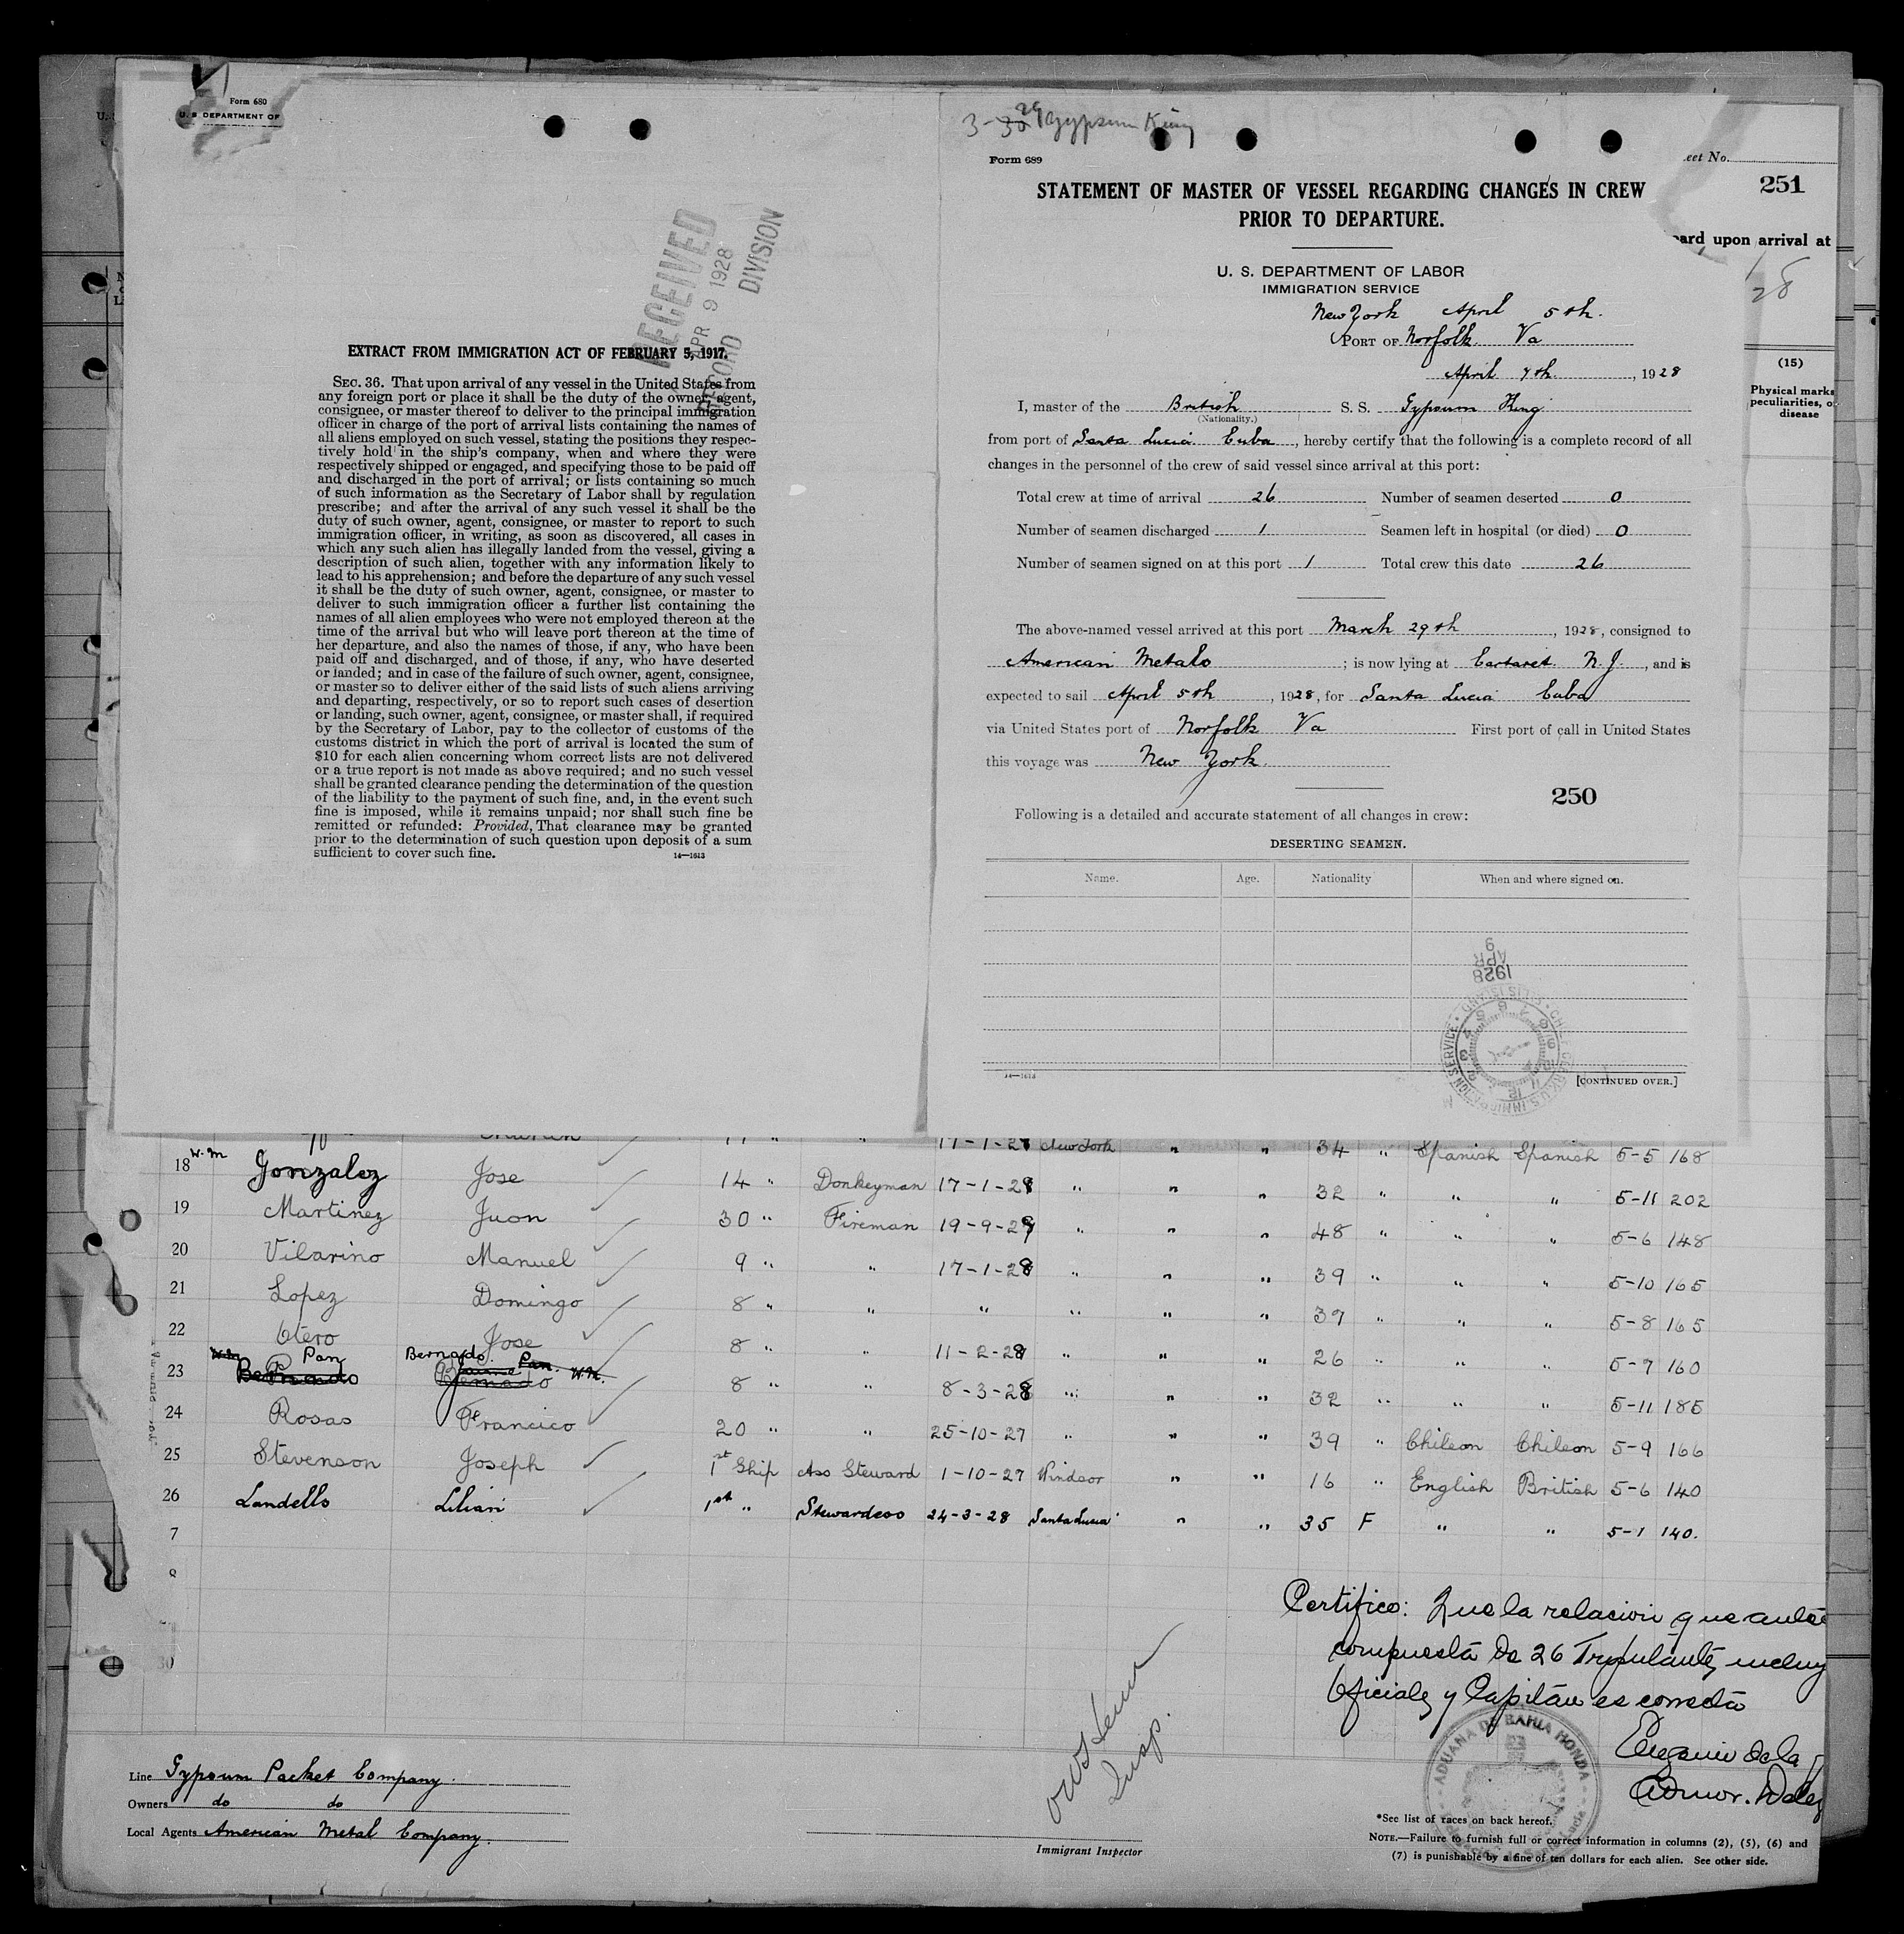 Form 680
U. S. DEPARTMENT OF
RECEIVED
APR 9 1928
RECORD DIVISION
EXTRACT FROM IMMIGRATION ACT OF FEBRUARY 5, 1917.
SEC. 36. That upon arrival of any vessel in the United States from
any foreign port or place it shall be the duty of the owner, agent,
consignee, or master thereof to deliver to the principal immigration
officer in charge of the port of arrival lists containing the names of
all aliens employed on such vessel, stating the positions they respec-
tively hold in the ship's company, when and where they were
respectively shipped or engaged, and specifying those to be paid off
and discharged in the port of arrival; or lists containing so much
of such information as the Secretary of Labor shall by regulation
prescribe; and after the arrival of any such vessel it shall be the
duty of such owner, agent, consignee, or master to report to such
immigration officer, in writing, as soon as discovered, all cases in
which any such alien has illegally landed from the vessel, giving a
description of such alien, together with any information likely to
lead to his apprehension; and before the departure of any such vessel
it shall be the duty of such owner, agent, consignee, or master to
deliver to such immigration officer a further list containing the
names of all alien employees who were not employed thereon at the
time of the arrival but who will leave port thereon at the time of
her departure, and also the names of those, if any, who have been
paid off and discharged, and of those, if any, who have deserted
or landed; and in case of the failure of such owner, agent, consignee,
or master so to deliver either of the said lists of such aliens arriving
and departing, respectively, or so to report such cases of desertion
or landing, such owner, agent, consignee, or master shall, if required
by the Secretary of Labor, pay to the collector of customs of the
customs district in which the port of arrival is located the sum of
$10 for each alien concerning whom correct lists are not delivered
or a true report is not made as above required; and no such vessel
shall be granted clearance pending the determination of the question
of the liability to the payment of such fine, and, in the event such
fine is imposed, while it remains unpaid; nor shall such fine be
remitted or refunded: Provided, That clearance may be granted
prior to the determination of such question upon deposit of a sum
sufficient to cover such fine.
14—1613
3-30 29 Gypsum King
Form 689
STATEMENT OF MASTER OF VESSEL REGARDING CHANGES IN CREW
PRIOR TO DEPARTURE.
U. S. DEPARTMENT OF LABOR
IMMIGRATION SERVICE
New York April 5th.
PORT OF Norfolk Va
April 7th, 1928
I, master of the British S. S. Gypsum King
(Nationality.)
from port of Santa Lucia Cuba, hereby certify that the following is a complete record of all
changes in the personnel of the crew of said vessel since arrival at this port:
Total crew at time of arrival 26 Number of seamen deserted 0
Number of seamen discharged 1 Seamen left in hospital (or died) 0
Number of seamen signed on at this port 1 Total crew this date 26
The above-named vessel arrived at this port March 29th, 1928, consigned to
American Metals; is now lying at Carteret N. J., and is
expected to sail April 5th, 1928, for Santa Lucia Cuba
via United States port of Norfolk Va First port of call in United States
this voyage was New York.
250
Following is a detailed and accurate statement of all changes in crew:
DESERTING SEAMEN.
Name. Age. Nationality When and where signed on.
1928 APR 9
14—1613
[CONTINUED OVER.]
eet No.
251
ard upon arrival at
(15)
Physical marks
peculiarities, o
disease
17-1-28 New York " " 34 " Spanish Spanish 5-5 168
18 W.M Gonzalez Jose 14 " Donkeyman 17-1-28 " " " 32 " " " 5-11 202
19 Martinez Juon 30 " Fireman 19-9-27 " " " 48 " " " 5-6 148
20 Vilarino Manuel 9 " " 17-1-28 " " " 39 " " " 5-10 165
21 Lopez Domingo 8 " " " " " " 37 " " " 5-8 165
22 Otero Jose 8 " " 11-2-28 " " " 26 " " " 5-7 160
23 Pan Bernado 8 " " 8-3-28 " " " 32 " " " 5-11 185
24 Rosas Francico 20 " " 25-10-27 " " " 39 " Chilean Chilean 5-9 166
25 Stevenson Joseph 1st Ship Ass Steward 1-10-27 Windsor " " 16 " English British 5-6 140
26 Landells Lilian 1st " Stewardess 24-3-28 Santa Lucia " " 35 F " " 5-1 140.
7
8
30
Certifico: Que la relacion que ante
compuesta de 26 Tripulantes, incluy
Oficiales y Capitán es correcta
Eugenio de la
ADUANA DE BAHIA HONDA
Insp.
Line Gypsum Packet Company.
Owners do do
Local Agents American Metal Company.
Immigrant Inspector
*See list of races on back hereof.
NOTE.—Failure to furnish full or correct information in columns (2), (5), (6) and
(7) is punishable by a fine of ten dollars for each alien. See other side.